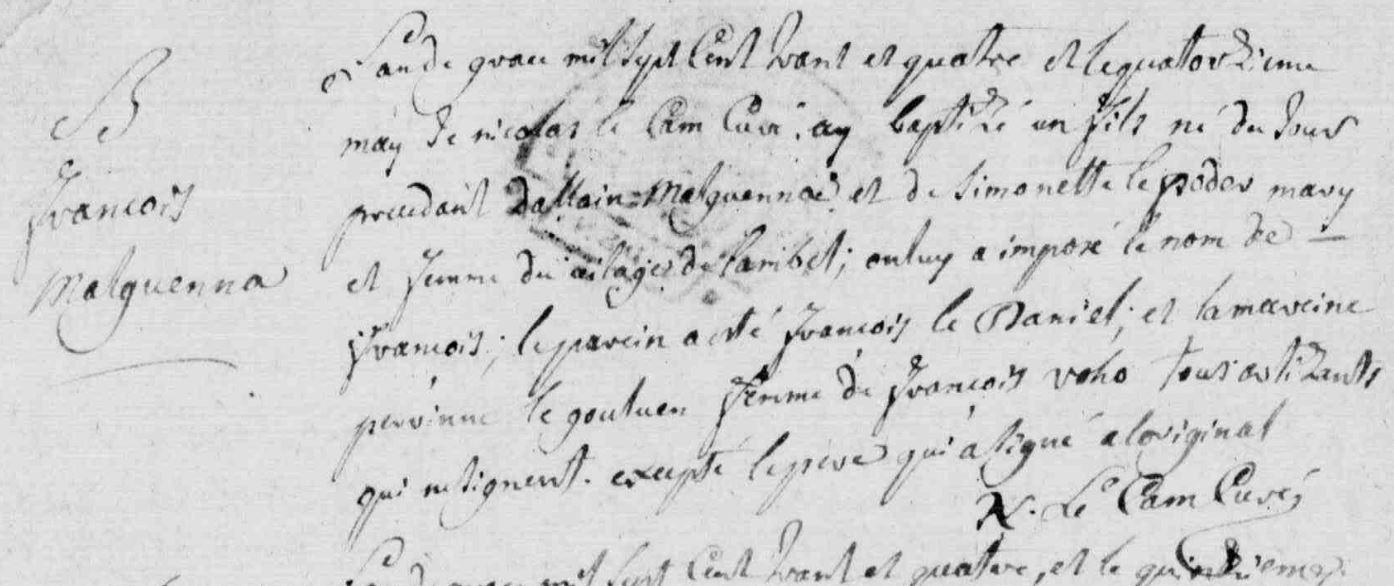 B
francois
Malguenna
L'an de grace mil sept cent trant et quatre et le quatorzieme
may Je nicolas le Cam Curé. ay baptizé un fils né du Jour
precedant d'allain Malguenna et de Simonette le poder mary
et femme du vilage de ; on luy a imposé le nom de —
francois; le parein a esté francois le Daniel; et la mareine
perrinne le gouluen femme de francois voho tous artizants
qui ne signent. excepté le pere qui a signé a loriginal
N. Le Cam Curé
L'an de grace mil sept cent trant et quatre, et le quinzieme